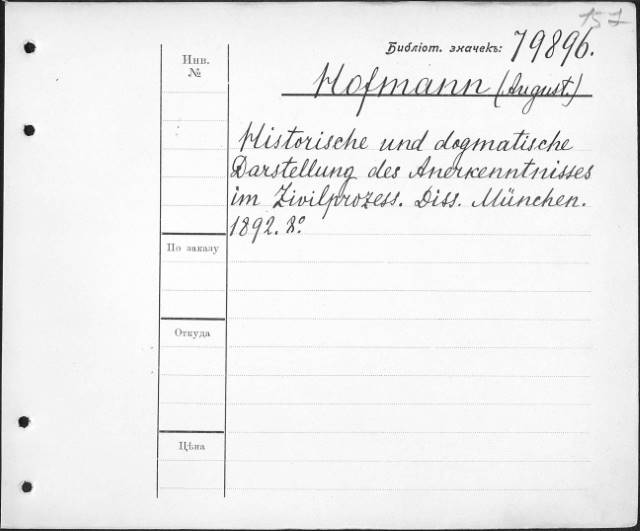 157
Библіот. значекъ: 79896.
Hofmann (August.)
Инв.
№
Historische und dogmatische
Darstellung des Anerkenntnisses
im Zivilprozess. Diss. München.
1892. 8°.
По заказу
Откуда
Цѣна